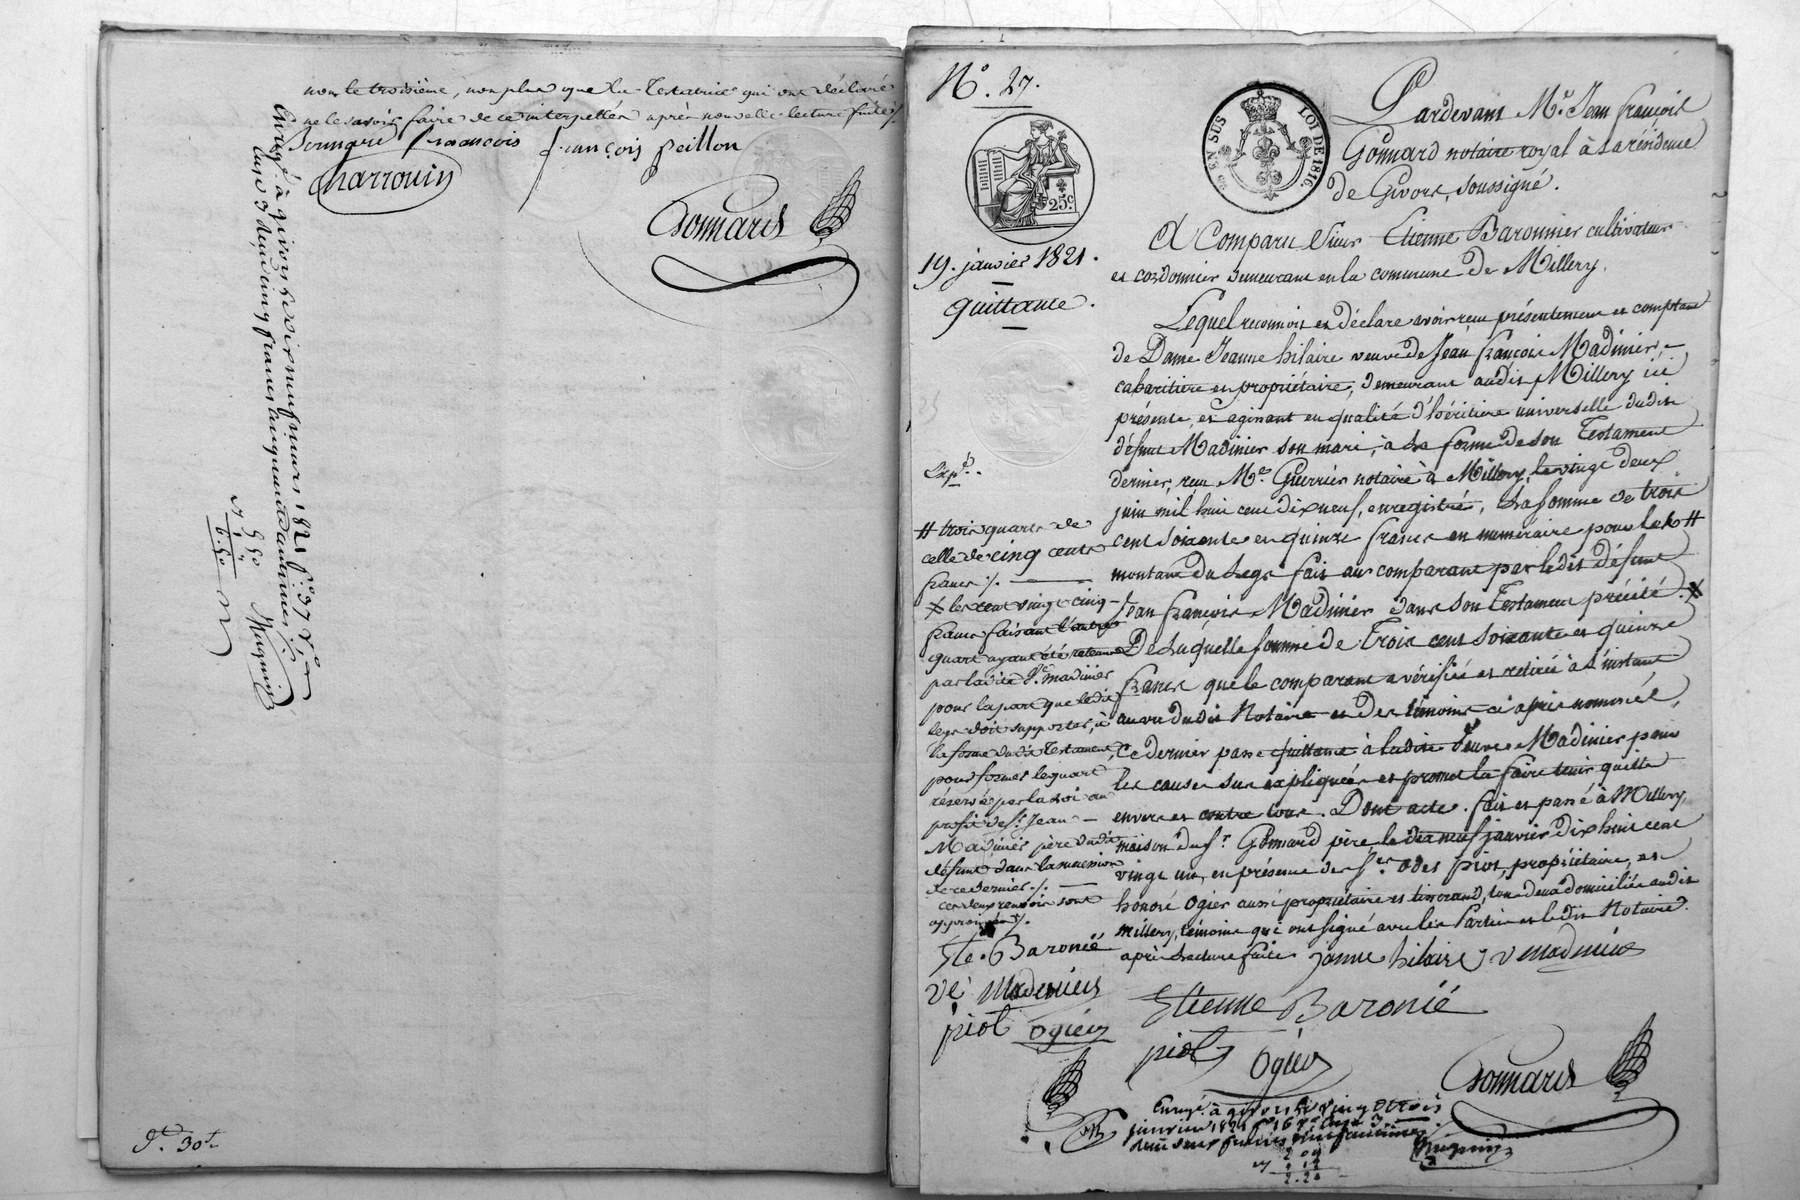 nous le troisième, non plus que la Testatrice qui ont déclaré
ne le savoir faire de ce interpellés après nouvelle lecture faite /.
François françois peillon
Charrouin
Gonnard
Enregé. à givors le dix neuf mars 1821 fo. 37
reçu 5 francs cinquante centimes
5 50
6.50
Maignin
30
No. 27.
25c.
EN SUS
LOI DE 1816.
19. janvier 1821.
quittance.
Expd..
Pardevant Me. Jean françois
Gonnard notaire royal à la résidence
de Givors, soussigné.
A Comparu Sieur Etienne Baronnier cultivateur
et cordonnier demeurant en la commune de Millery.
Lequel reconnoit et déclare avoir reçu présentement et comptant
de Dame Jeanne hilaire veuve de Jean françois Madinier
cabaritière et propriétaire, demeurant audit Millery ici
présente, et agissant en qualité d'héritière universelle dudit
défunt Madinier son mari, à la forme de son Testament
dernier, reçu Me. Guerrier notaire à Millery, le vingt deux
juin mil huit cent dix neuf, enregistré, la somme de trois
cent soixante et quinze francs en numéraire pour les #
montant du legs fait au comparant par ledit défunt
Jean françois Madinier dans son Testament précité. X
De laquelle somme de Trois cent soixante et quinze
francs que le comparant a vérifiée et retirée à l'instant
au vu dudit Notaire et des témoins ci après nommés,
Ce dernier passe quittance à ladite veuve Madinier pour
les causes sus expliquées et promet la faire tenir quitte
envers et contre tous. Dont acte. fait et passé à Millery,
maison du sr. Gonnard père le dix neuf janvier dix huit cent
vingt un, en présence de srs. odet piot, propriétaire, et
honoré ogier aussi propriétaire et tisserand, tous deux domiciliés audit
Millery, témoins qui ont signé avec les Parties et ledit Notaire.
après lecture faite
# trois quarts de
celle de cinq cents
francs /.
X les cent vingt cinq
francs faisant l'autre
quart ayant été retenus
par ladite De. madinier
pour la part que ledit
legs doit supporter, à
la forme dudit Testament,
pour former le quart
réservé par la loi au
profit de sr. Jean
Madinier père dudit
défunt dans la succession
de ce dernier /.
ces deux renvois sont
approuvés /.
jeanne hilaire v madinier
Ete. Baronié
ve Madinier
piot ogier
Etienne Baronié
piot
Ogier
Gonnard
Enregé. à givors le vingt trois
janvier 1821
reçu deux francs
2.20